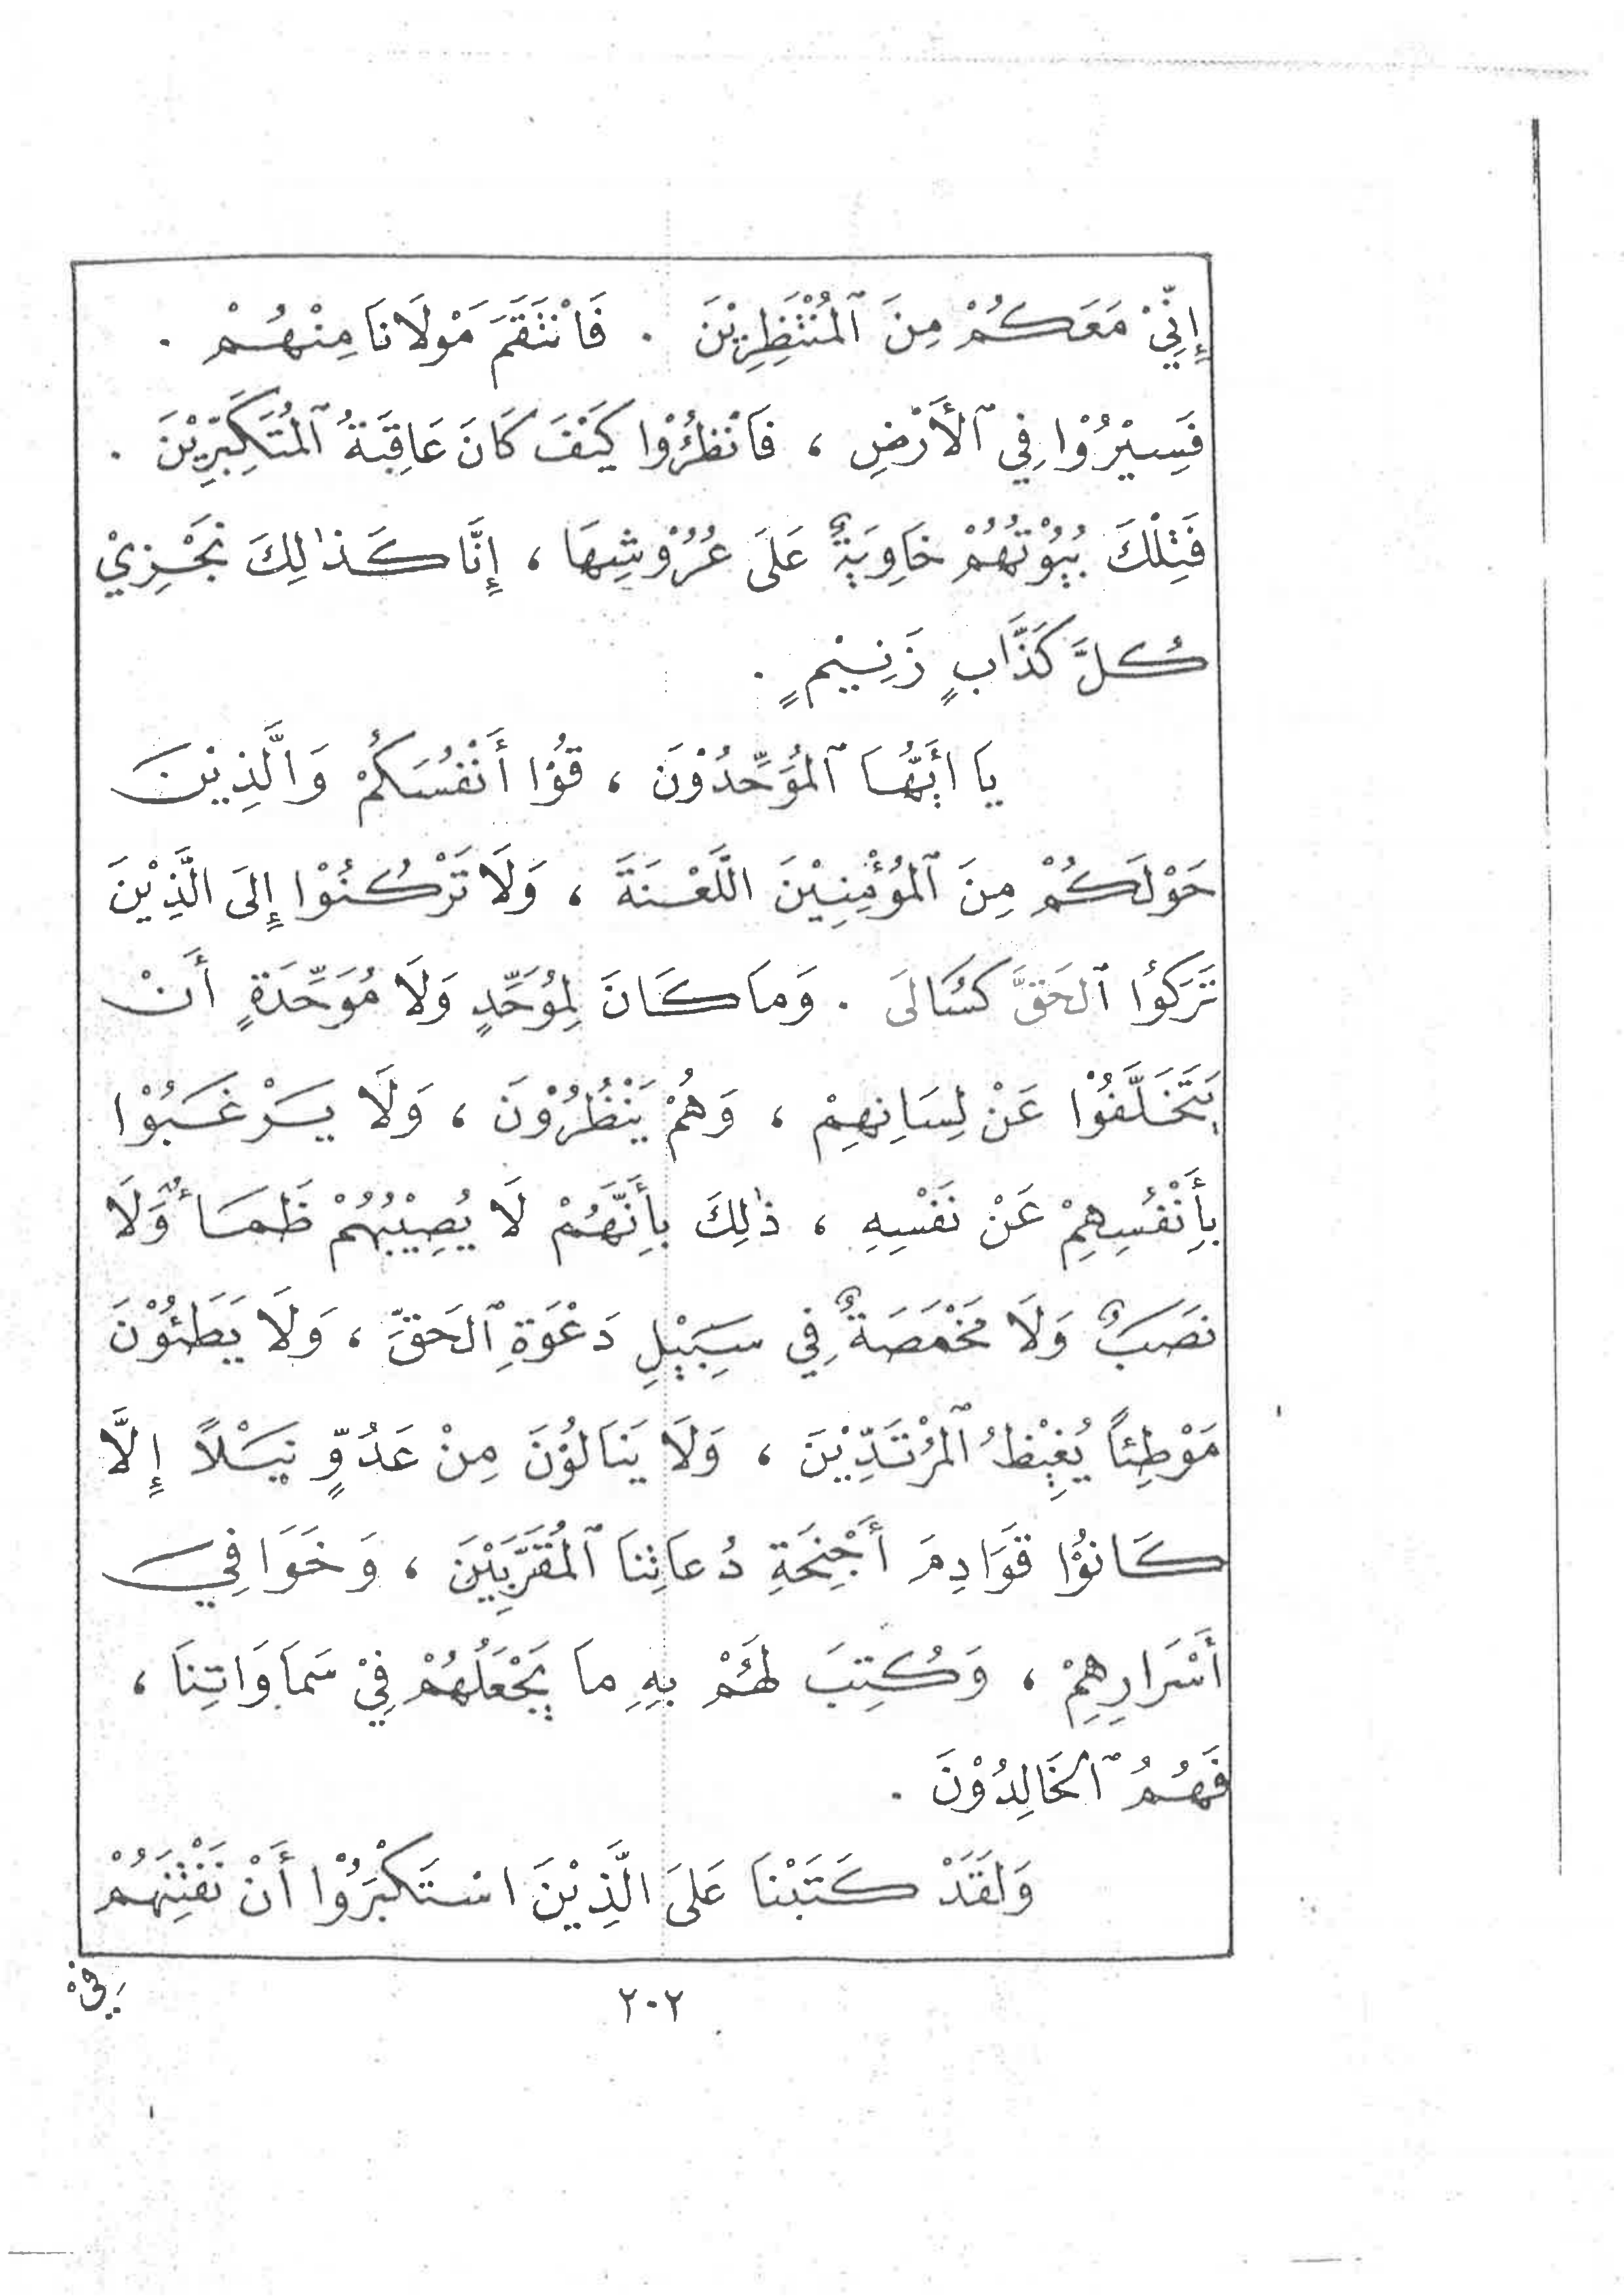 إِنِّيْ مَعَكُمْ مِنَ ٱلْمُنْتَظِرِيْنَ . فَانْتَقَمَ مَوْلَانَا مِنْهُمْ .
فَسِيْرُوْا فِي ٱلْأَرْضِ ، فَانْظُرُوْا كَيْفَ كَانَ عَاقِبَةُ ٱلْمُتَكَبِّرِيْنَ .
فَتِلْكَ بُيُوْتُهُمْ خَاوِيَةٌ عَلَى عُرُوْشِهَا ، إِنَّا كَذٰلِكَ نَجْزِيْ
كُلَّ كَذَّابٍ زَنِيْمٍ .
يَا أَيُّهَا ٱلْمُوَحِّدُوْنَ ، قُوْا أَنْفُسَكُمْ وَالَّذِيْنَ
حَوْلَكُمْ مِنَ ٱلْمُؤْمِنِيْنَ اللَّعْنَةَ ، وَلَا تَرْكُنُوْا إِلَى الَّذِيْنَ
تَرَكُوْا ٱلحَقَّ كُسَالَى . وَمَا كَانَ لِمُوَحِّدٍ وَلَا مُوَحِّدَةٍ أَنْ
يَتَخَلَّفُوْا عَنْ لِسَانِهِمْ ، وَهُمْ يَنْظُرُوْنَ ، وَلَا يَرْغَبُوْا
بِأَنْفُسِهِمْ عَنْ نَفْسِهِ ، ذٰلِكَ بِأَنَّهُمْ لَا يُصِيْبُهُمْ ظَمَأٌ وَلَا
نَصَبٌ وَلَا مَخْمَصَةٌ فِي سَبِيْلِ دَعْوَةِ ٱلحَقِّ ، وَلَا يَطَئُوْنَ
مَوْطِئاً يُغِيْظُ ٱلْمُرْتَدِّيْنَ ، وَلَا يَنَالُوْنَ مِنْ عَدُوٍّ نَيْلاً إِلَّا
كَانُوْا قَوَادِمَ أَجْنِحَةِ دُعَاتِنَا ٱلْمُقَرَّبِيْنَ ، وَخَوَافِيَ
أَسْرَارِهِمْ ، وَكُتِبَ لَهُمْ بِهِ مَا يَجْعَلُهُمْ فِيْ سَمَاوَاتِنَا ،
فَهُمُ ٱلْخَالِدُوْنَ .
وَلَقَدْ كَتَبْنَا عَلَى الَّذِيْنَ اسْتَكْبَرُوْا أَنْ نَفْتِنَهُمْ
فِيْ
٢٠٢